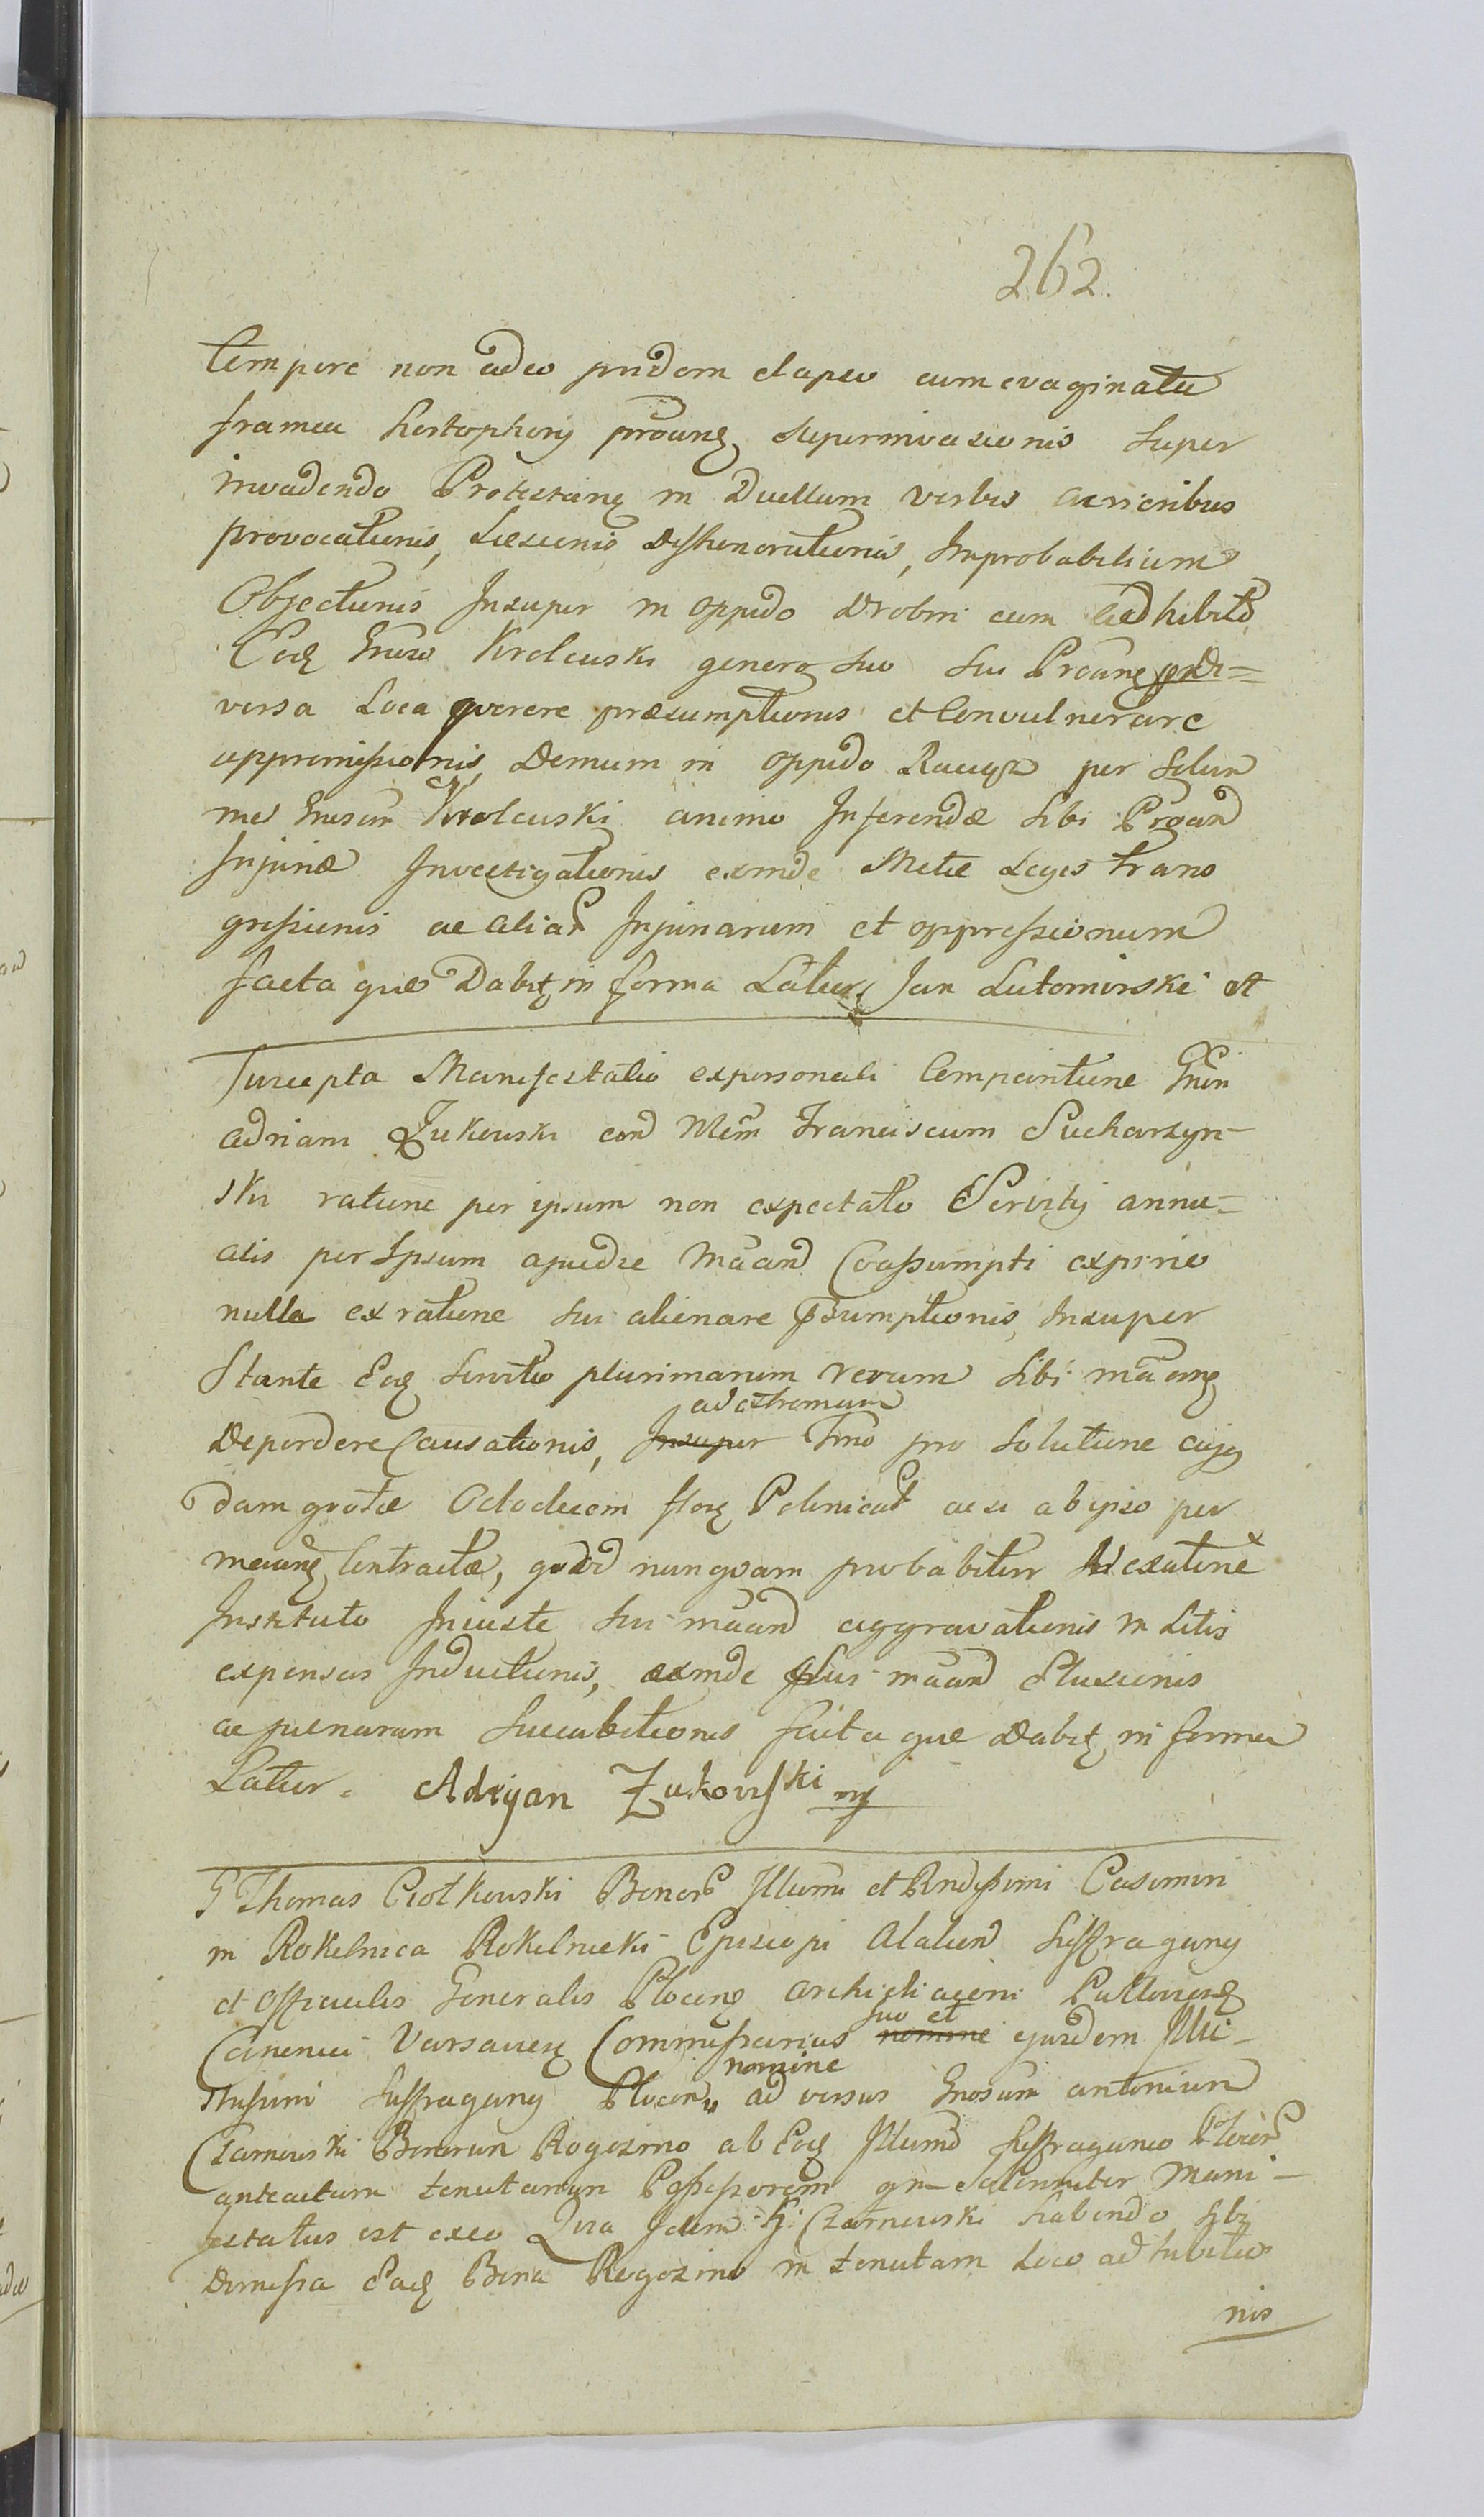 262.
tempore non adeo pridem elapso cum evaginata
framea hostophorij protne superinvasionis super
invadendo Protestane in Duellum verbis acrioribus
provocationis, Læsionis dishonorationis, Improbabilium
Objectionis Insuper in oppido Drobin cum adhibito
Eodę Gnoso Krolewski genero suo sui Protnę p di=
versa Loca qverere præsumptionis et Convulnerare
appromissionis, Demum in oppido Raciąz per Solen
nes Gnosum Krolewski animo Inferendæ sibi Protand
Injuriæ Investigationis exinde Metæ Leges trans
gressionis ac aliar Injuriarum et oppressionum
facta quæ Dabit in forma Latior Jan Lutomirski et
Suscepta Manifestatio ex personali Comparitione Gnoi
Adriani Zukowski cond Mem Franciscum Sucharzyn-
ski ratione per ipsum non expectato Servitij annu-
alis per Ipsum apud se Mand Coassumpti ex prio
nulla ex ratione sui alienare psumptionis, Insuper
Stante Eodę servitio plurimarum rerum sibi mane
Deperdere Causationis, Insuper ad extremum Tmo pro solutione cujus
dam gvotæ Octodecim flor Polonical ac si ab ipso per
meane Contractæ, qvod nunqvam probabitur
Instituto Iniuste sui mand aggravationis in Litis
expensas Inductionis, exinde sui mand Elusionis
ac pænarum succubitionis facta quæ Dabit in forma
Latior. Adryan Zukowski mp
G Thomas Ciotkowski Bonor Illumi et Rndissimi Casimiri
in Rokitnica Rokitnicki Episcopi Alalien Suffraganij
et Officialis Generalis Plocene Archidiaconi Pultovien
Canonici Varsavien Commissarius nomine suo et ejusdem Illu-
strissimi Suffraganij Plocen nomine adversus Gnosum Antonium
Czarnowski Bonorum Rogozino ab Eodę Illumo Suffraganeo Plocen
anteactum tenutarium Possessorem qm solenniter Mani-
festatus est ex eo Qvia Idem G: Czarnowski habendo sibi
Dimissa Eadę Bona Rogozino in tenutam Loco adhibitio
nis